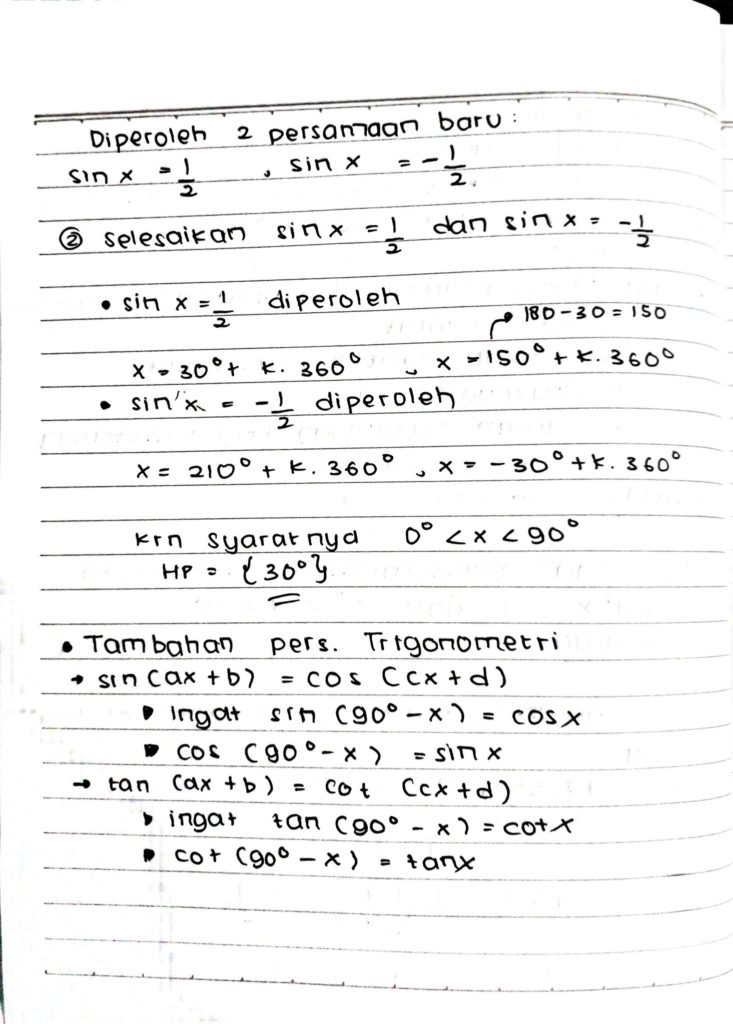 Diperoleh 2 persamaan baru :
sin x = 1/2 , sin x = - 1/2.
② selesaikan sin x = 1/2 dan sin x = - 1/2
• sin x = 1/2 diperoleh
180 - 30 = 150
x = 30° + k. 360° , x = 150° + k. 360°
• sin x = - 1/2 diperoleh
x = 210° + k. 360° , x = - 30° + k. 360°
krn syaratnya 0° < x < 90°
HP = {30°}
• Tambahan pers. Trigonometri
→ sin (ax + b) = cos (cx + d)
▶ Ingat sin (90° - x) = cos x
▶ cos (90° - x) = sin x
→ tan (ax + b) = cot (cx + d)
▶ ingat tan (90° - x) = cot x
▶ cot (90° - x) = tan x